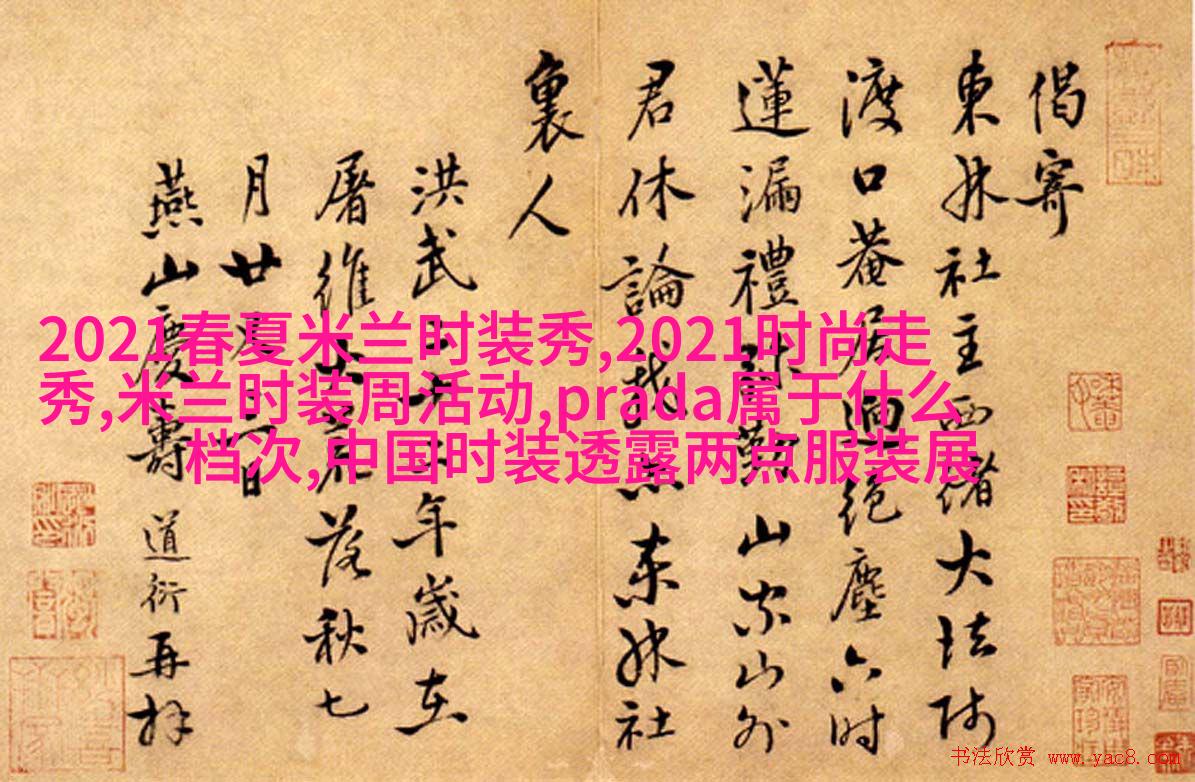 偈寄
東林社主西緒大法師
渡口菴居迥絕塵六時
蓮漏禮弥勤山家山外
君休論我亦東林社
裏人
洪武二十二年歲在
屠維大荒落秋七
月廿二日
燕山慶壽道衍再拜
2021春夏米兰时装秀,2021时尚走
秀,米兰时装周活动,prada属于什么
档次,中国时装透露两点服装展
书法欣赏 www.yac8.com